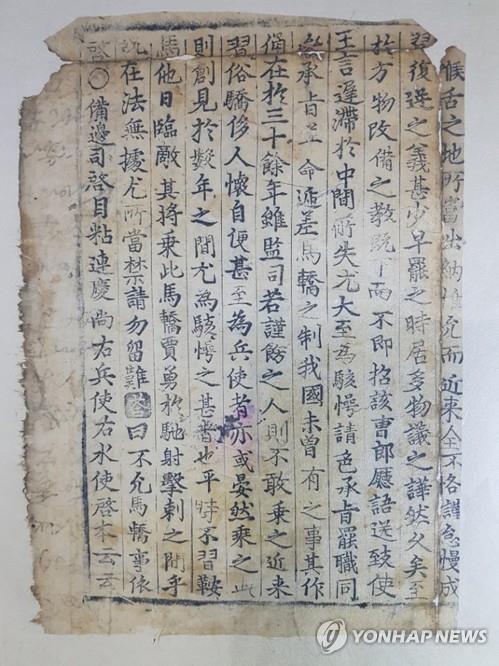 喉舌之地所當出納惟允而近來全不恪謹怠慢成
習復逆之義甚少早罷之時居多物議之譁然久矣至
於方物改備之教既下而不即招該曹郎廳語送致使
王言遲滯於中間所失尤大至為駭愕請色承旨罷職同
參承旨並命遞差馬轎之制我國未曾有之事其作
俑在於三十餘年雖監司若謹飭之人則不敢乘之近來
習俗驕侈人懷自便甚至為兵使者亦或晏然乘之此
則創見於數年之間尤為駭愕之甚者也平時不習鞍
馬他日臨敵其將乘此馬轎賈勇於馳射擊刺之間乎
況在法無據尤所當禁請勿留難答曰不允馬轎事依
啓○備邊司啓目粘連慶尚右兵使右水使啓本云云
YONHAP NEWS